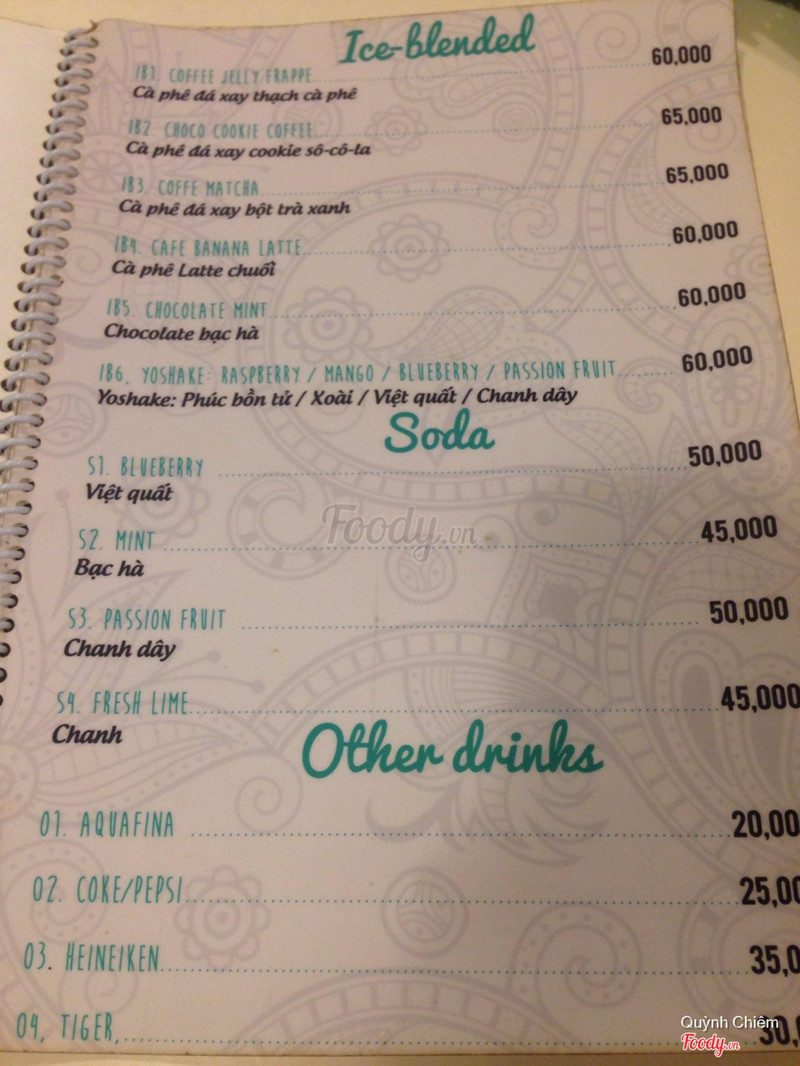 Ice-blended
IB1. COFFEE JELLY FRAPPE 60,000
Cà phê đá xay thạch cà phê
IB2. CHOCO COOKIE COFFEE 65,000
Cà phê đá xay cookie sô-cô-la
IB3. COFFE MATCHA 65,000
Cà phê đá xay bột trà xanh
IB4. CAFE BANANA LATTE 60,000
Cà phê Latte chuối
IB5. CHOCOLATE MINT 60,000
Chocolate bạc hà
IB6. YOSHAKE: RASPBERRY / MANGO / BLUEBERRY / PASSION FRUIT 60,000
Yoshake: Phúc bồn tử / Xoài / Việt quất / Chanh dây
Soda
S1. BLUEBERRY 50,000
Việt quất
S2. MINT 45,000
Bạc hà
Foody.vn
S3. PASSION FRUIT 50,000
Chanh dây
S4. FRESH LIME 45,000
Chanh
Other drinks
01. AQUAFINA 20,00
02. COKE/PEPSI 25,00
03. HEINEIKEN 35,0
04, TIGER, 30,
Quỳnh Chiêm
Foody.vn